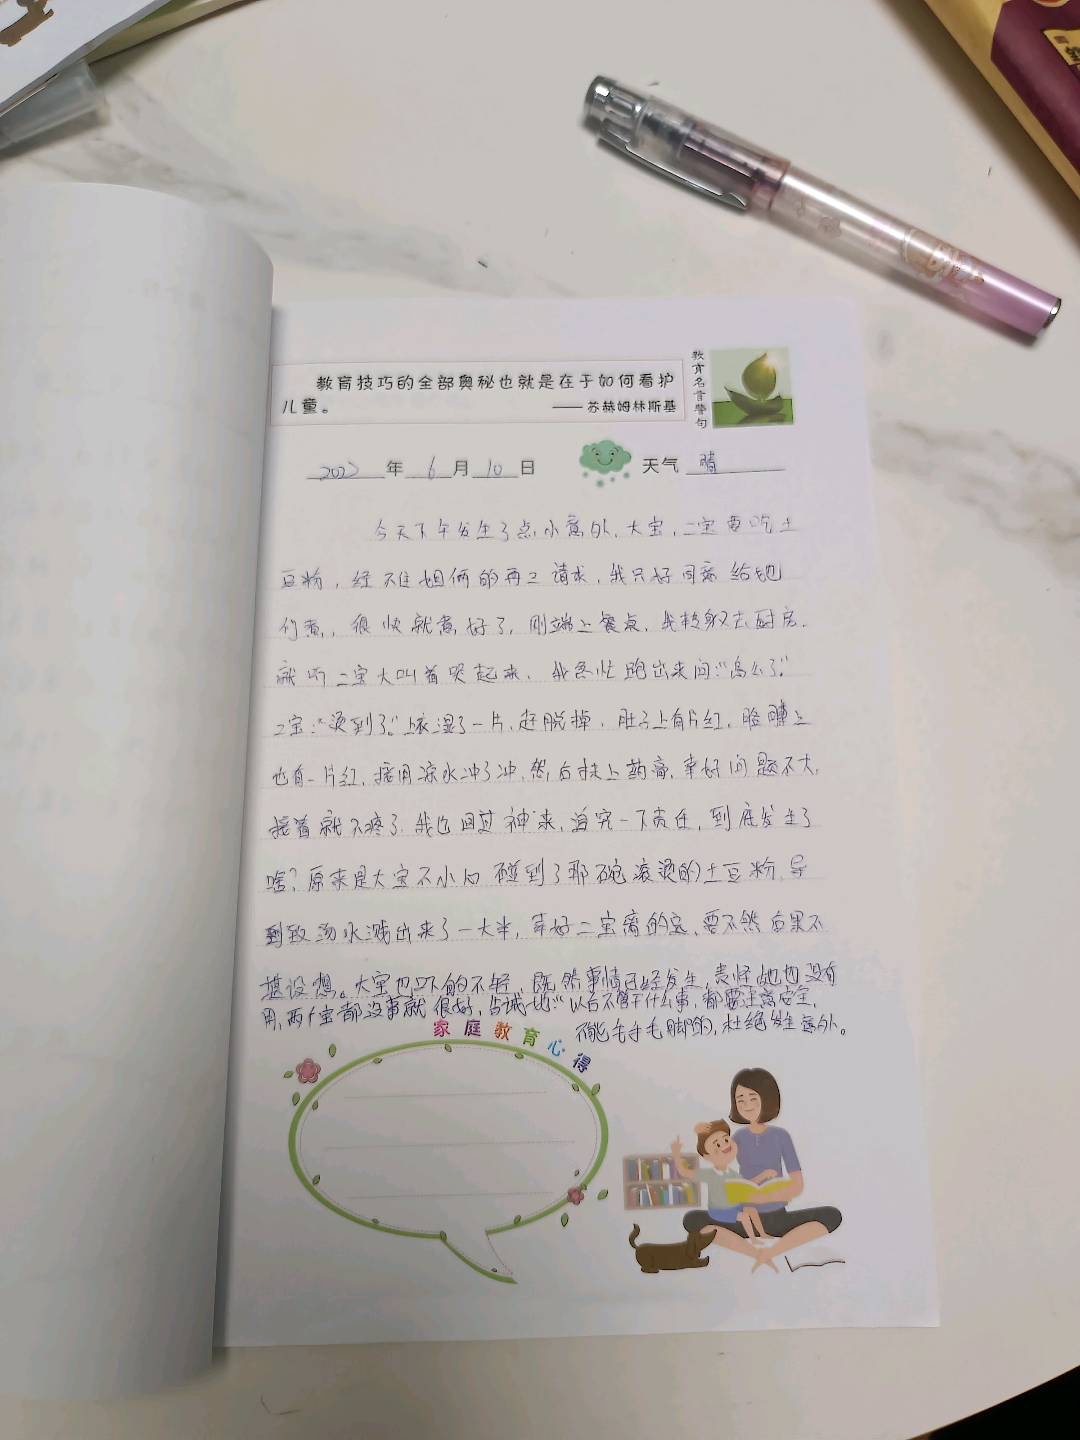 教育技巧的全部奥秘也就是在于如何看护
儿童。
——苏赫姆林斯基
教育名言警句
2022年6月10日
天气 晴
今天下午发生了点小意外,大宝,二宝要吃土
豆粉,经不住姐俩的再三请求,我只好同意给她
们煮,很快就煮好了,刚端上餐桌,我转身又去厨房,
就听二宝大叫着哭起来,我急忙跑出来问:"怎么了?"
二宝:"烫到了。"上衣湿了一片,赶脱掉,肚子上有片红,胳膊上
也有一片红,接用凉水冲了冲,然后抹上药膏,幸好问题不大,
接着就不疼了,我也回过神来,追究一下责任,到底发生了
啥?原来是大宝不小心碰到了那碗滚烫的土豆粉,导
致汤水溅出来了一大半,幸好二宝离的远,要不然后果不
堪设想。大宝也吓的不轻,既然事情已经发生,责怪她也没有
用,两个宝都没事就很好,告诫她:"以后不管干什么事,都要注意安全,
不能毛手毛脚的,杜绝发生意外。
家庭教育心得